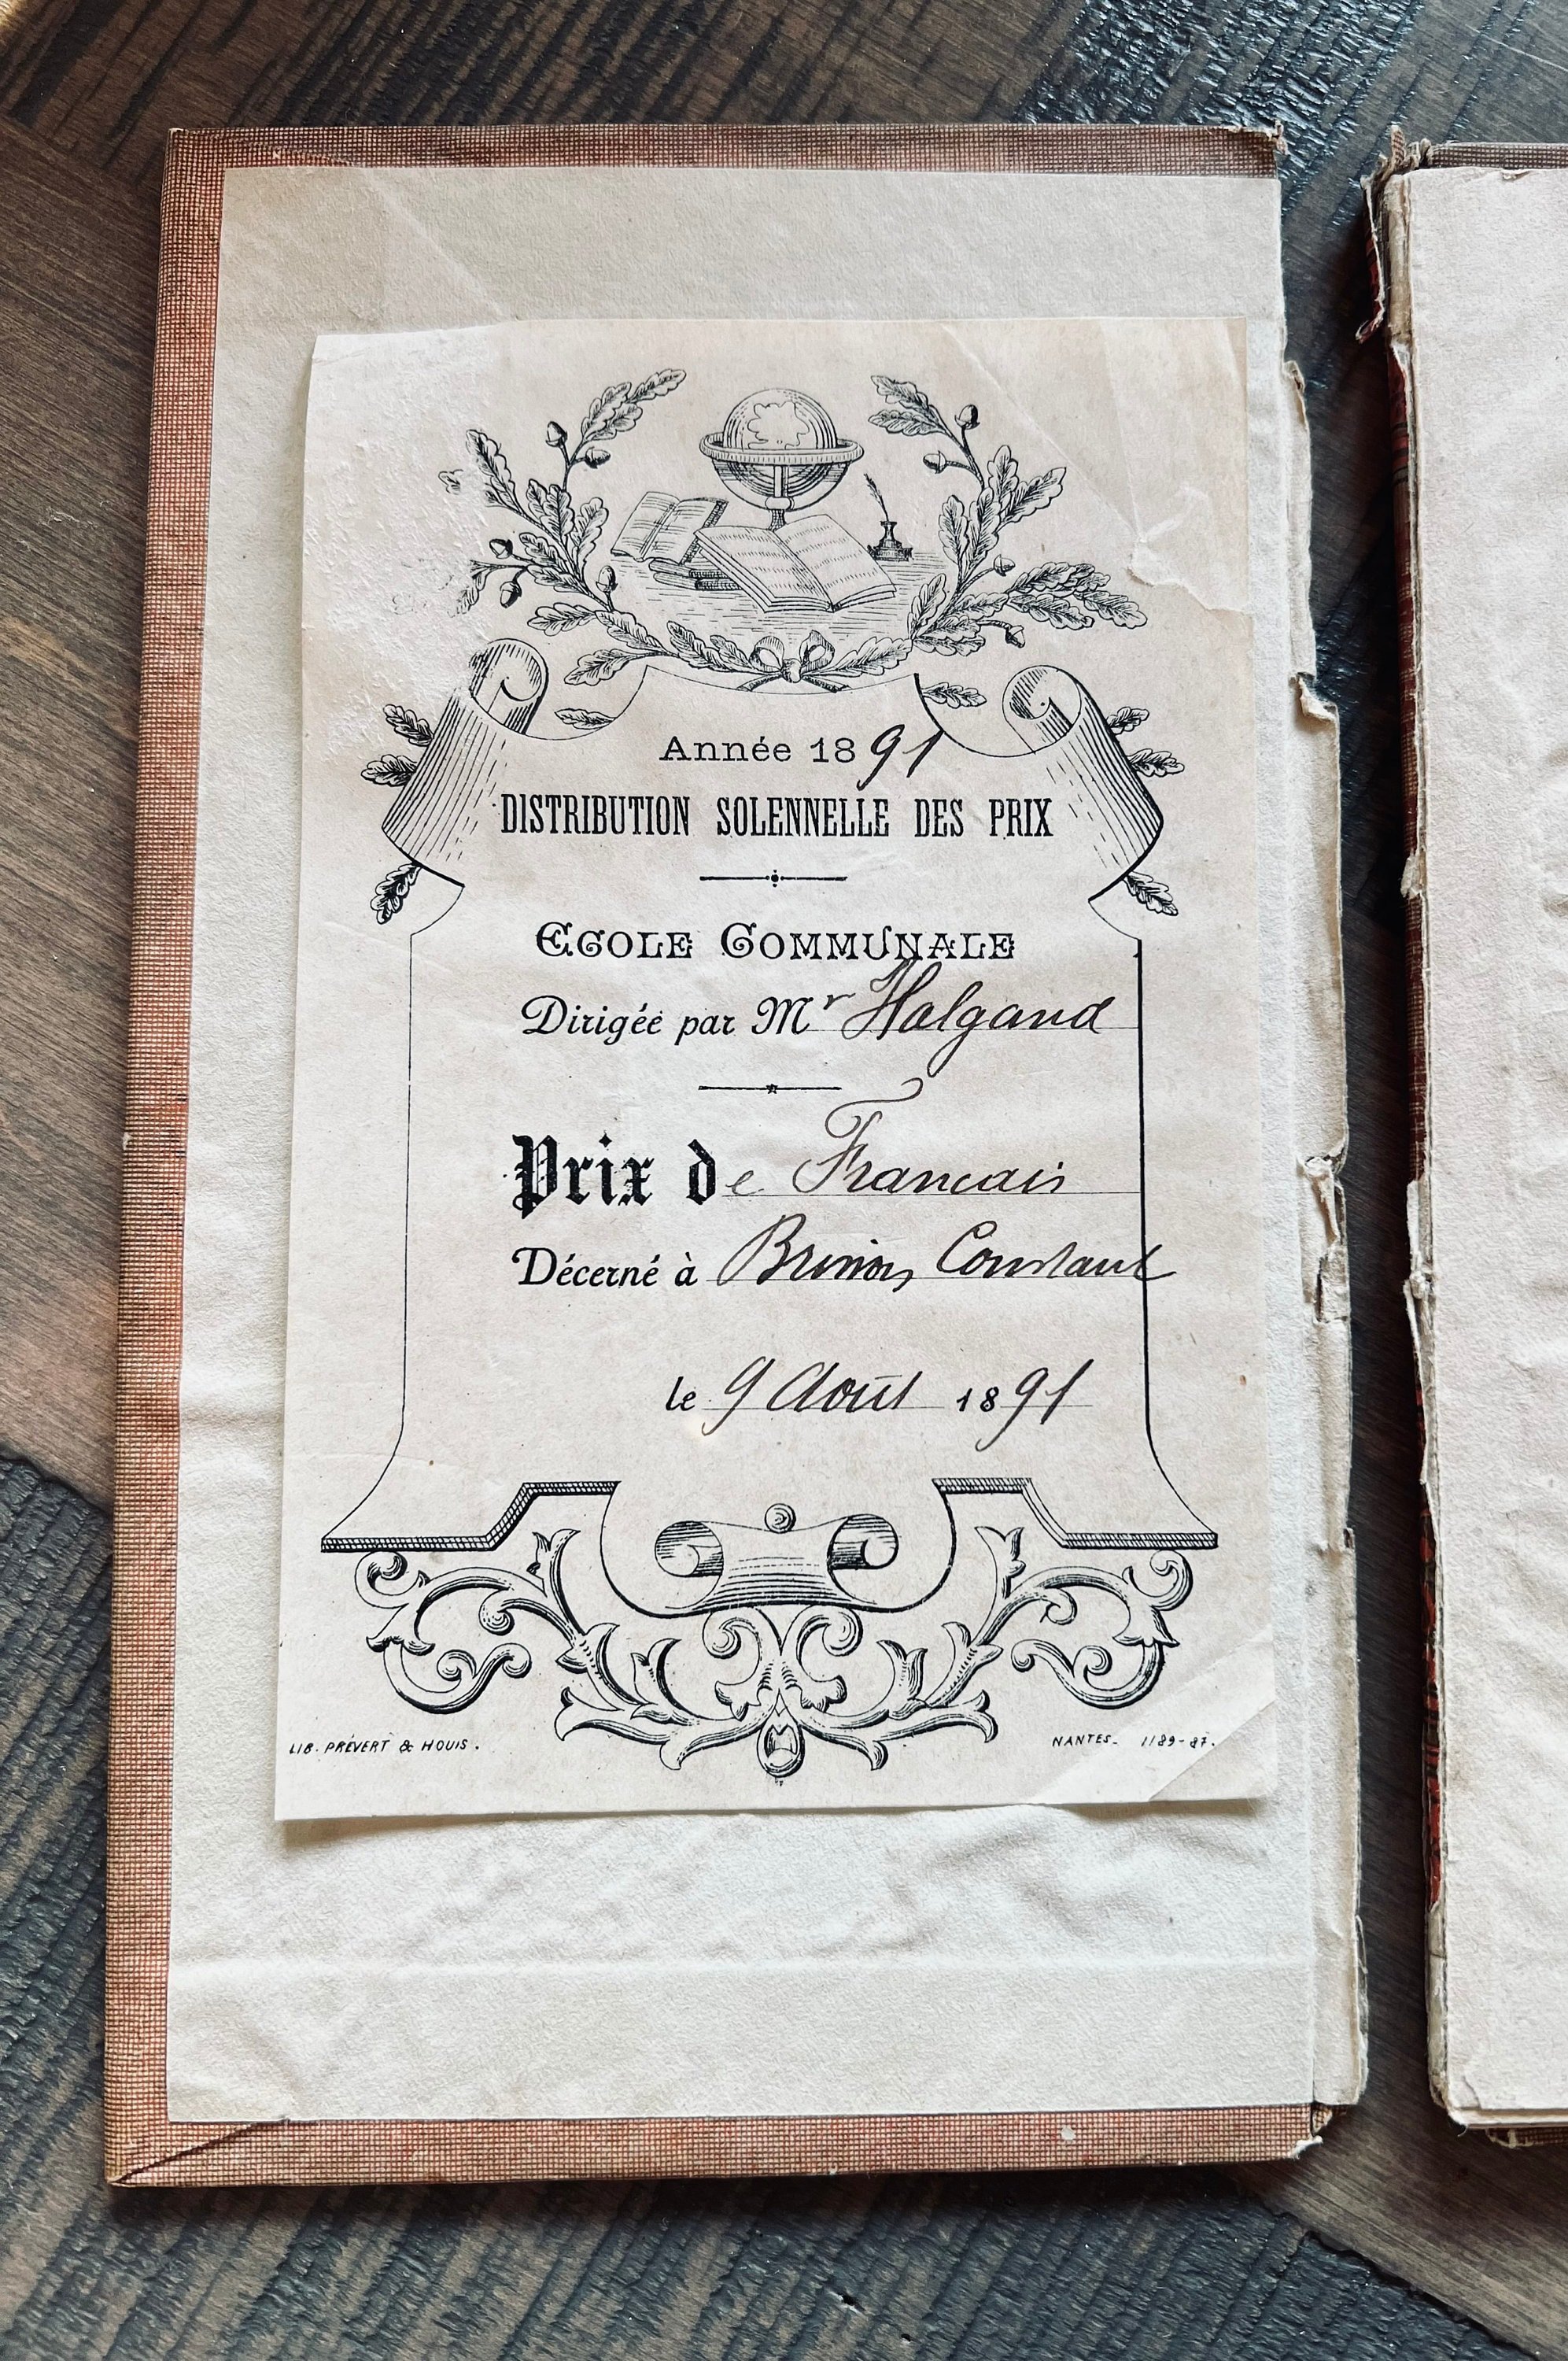 Année 1891
DISTRIBUTION SOLENNELLE DES PRIX
ECOLE COMMUNALE
Dirigée par Mr Halgand
Prix de Francais
Décerné à Constant
le 9 Août 1891
LIB. PRÉVERT & HOUIS.
NANTES. 1189-87.